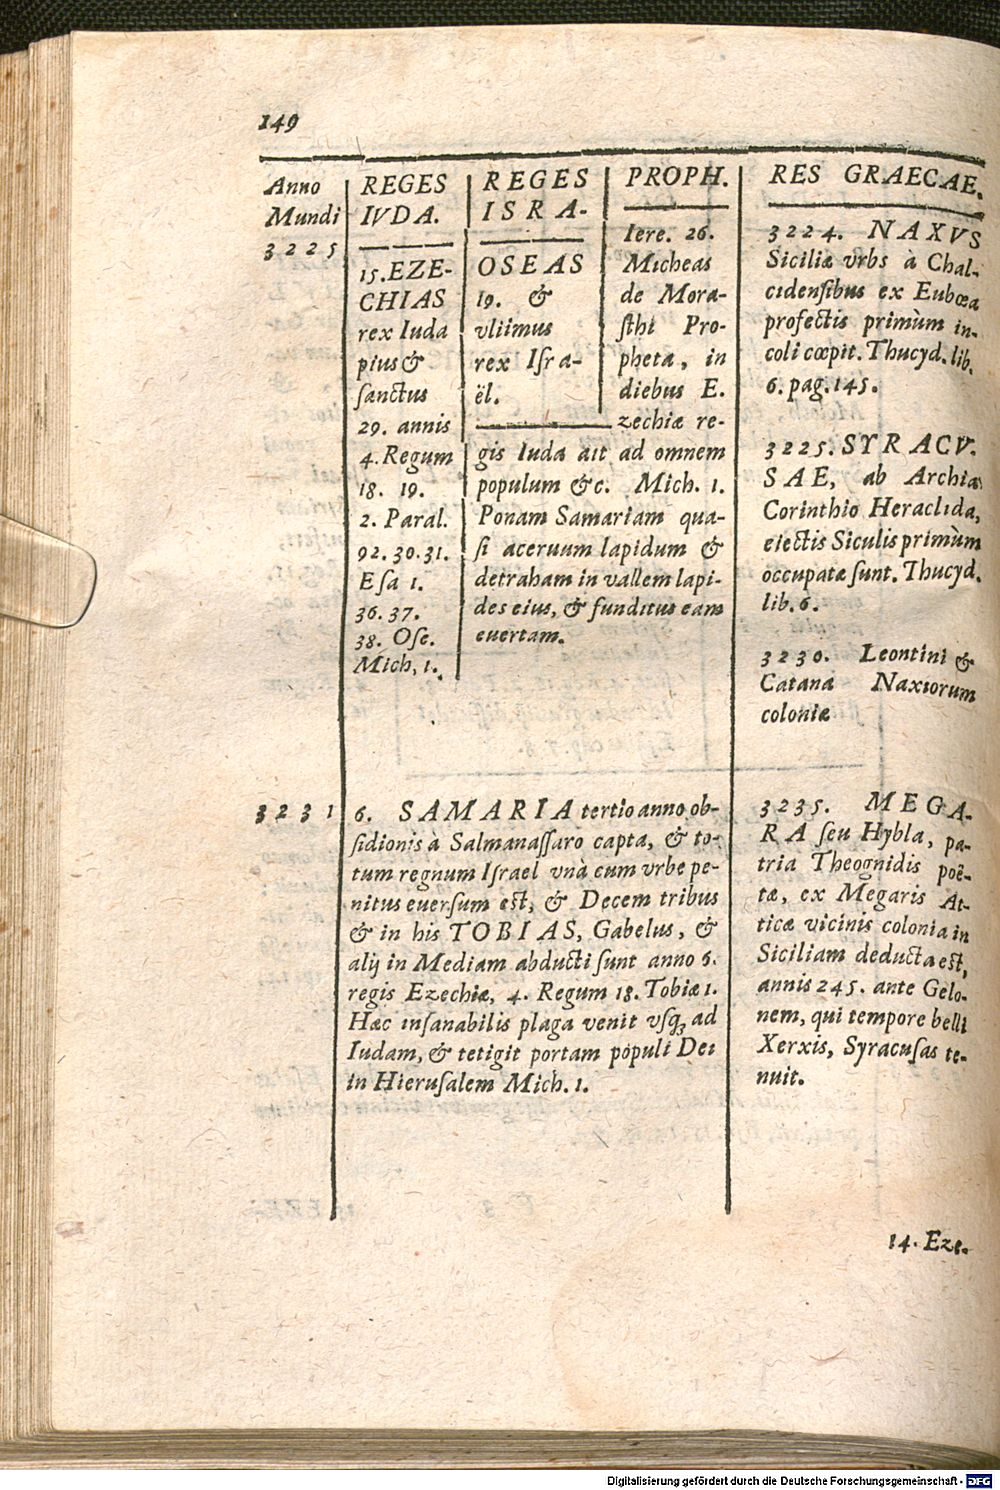 149
Anno
Mundi
3225
REGES
IVDA.
15. EZE-
CHIAS
rex Iuda
pius &
sanctus
29. annis
4. Regum
18. 19.
2. Paral.
92. 30. 31.
Esa 1.
36. 37.
38. Ose.
Mich, 1.
REGES
ISRA-
OSEAS
19. &
vltimus
rex Isra-
ël.
PROPH.
Iere. 26.
Micheas
de Mora-
sthi Pro-
pheta, in
diebus E.
zechiæ re-
gis Iuda ait ad omnem
populum &c. Mich. 1.
Ponam Samariam qua-
si aceruum lapidum &
detraham in vallem lapi-
des eius, & funditus eam
euertam.
3231
6. SAMARIA tertio anno ob-
sidionis à Salmanassaro capta, & to-
tum regnum Israel vnà cum vrbe pe-
nitus euersum est, & Decem tribus
& in his TOBIAS, Gabelus, &
alij in Mediam abducti sunt anno 6.
regis Ezechiæ, 4. Regum 18. Tobiæ 1.
Hæc insanabilis plaga venit vsq; ad
Iudam, & tetigit portam populi Dei
in Hierusalem Mich. 1.
RES GRAECAE.
3224. NAXVS
Siciliæ vrbs à Chal-
cidensibus ex Eubœa
profectis primùm in-
coli cœpit. Thucyd. lib.
6. pag. 145.
3225. SYRACV.
SAE, ab Archia
Corinthio Heraclida,
eiectis Siculis primùm
occupatæ sunt. Thucyd.
lib. 6.
3230. Leontini &
Catana Naxiorum
coloniæ
3235. MEGA-
RA seu Hybla, pa-
tria Theognidis poë-
tæ, ex Megaris At-
ticæ vicinis colonia in
Siciliam deducta est,
annis 245. ante Gelo-
nem, qui tempore belli
Xerxis, Syracusas te-
nuit.
14. Eze.
Digitalisierung gefördert durch die Deutsche Forschungsgemeinschaft - DFG